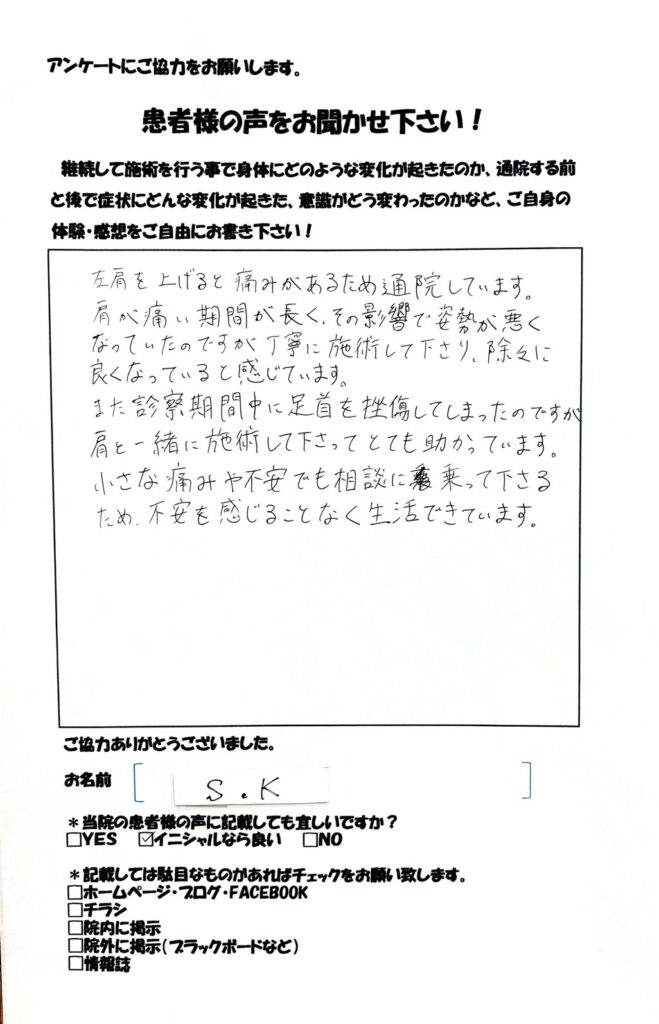 アンケートにご協力をお願いします。
患者様の声をお聞かせ下さい!
継続して施術を行う事で身体にどのような変化が起きたのか、通院する前
と後で症状にどんな変化が起きた、意識がどう変わったのかなど、ご自身の
体験・感想をご自由にお書き下さい!
左肩を上げると痛みがあるため通院しています。
肩が痛い期間が長く、その影響で姿勢が悪く
なっていたのですが丁寧に施術して下さり、除々に
良くなっていると感じています。
また診察期間中に足首を挫傷してしまったのですが
肩と一緒に施術して下さってとても助かっています。
小さな痛みや不安でも相談に乗って下さる
ため、不安を感じることなく生活できています。
ご協力ありがとうございました。
お名前 [ S.K ]
*当院の患者様の声に記載しても宜しいですか?
□YES ☑イニシャルなら良い □NO
*記載しては駄目なものがあればチェックをお願い致します。
□ホームページ・ブログ・FACEBOOK
□チラシ
□院内に掲示
□院外に掲示(ブラックボードなど)
□情報誌